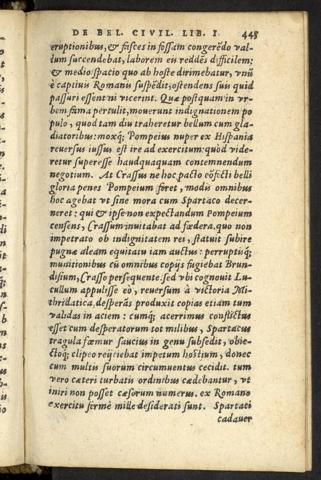 DE BEL. CIVIL. LIB. I. 445
eruptionibus, & fasces in fossam congerēdo val-
lum succendebat, laborem eis reddēs difficilem:
& medio spacio quo ab hoste dirimebatur, vnū
è captiuis Romanis suspēdit, ostendens suis quid
passuri essent ni vicerint. Quæ postquam in vr-
bem fama pertulit, mouerunt indignationem po
pulo, quod tam diu traheretur bellum cum gla-
diatoribus: moxq; Pompeius nuper ex Hispania
reuersus iussus est ire ad exercitum: quòd vide-
retur superesse haudquaquam contemnendum
negotium. At Crassus ne hoc pacto cōfecti belli
gloria penes Pompeium foret, modis omnibus
hoc agebat vt sine mora cum Spartaco decer-
neret: qui & ipse non expectandum Pompeium
censens, Crassum inuitabat ad fœdera. quo non
impetrato ob indignitatem rei, statuit subire
pugnæ aleam equitatu iam auctus: perruptisq́;
munitionibus cū omnibus copijs fugiebat Brun-
disium, Crasso persequente. sed vbi cognouit Lu-
cullum appulisse eò, reuersum à victoria Mi-
thridatica, desperās produxit copias etiam tum
validas in aciem: cumq́; acerrimus conflictus
esset cum desperatorum tot milibus, Spartacus
tragula fœmur saucius in genu subsedit, obie-
ctoq́; clipeo reijciebat impetum hostium, donec
cum multis suorum circumuentus cecidit. tum
vero cæteri turbatis ordinibus cædebantur, vt
iniri non posset cæsorum numerus. ex Romano
exercitu fermè mille desiderati sunt. Spartaci
cadauer